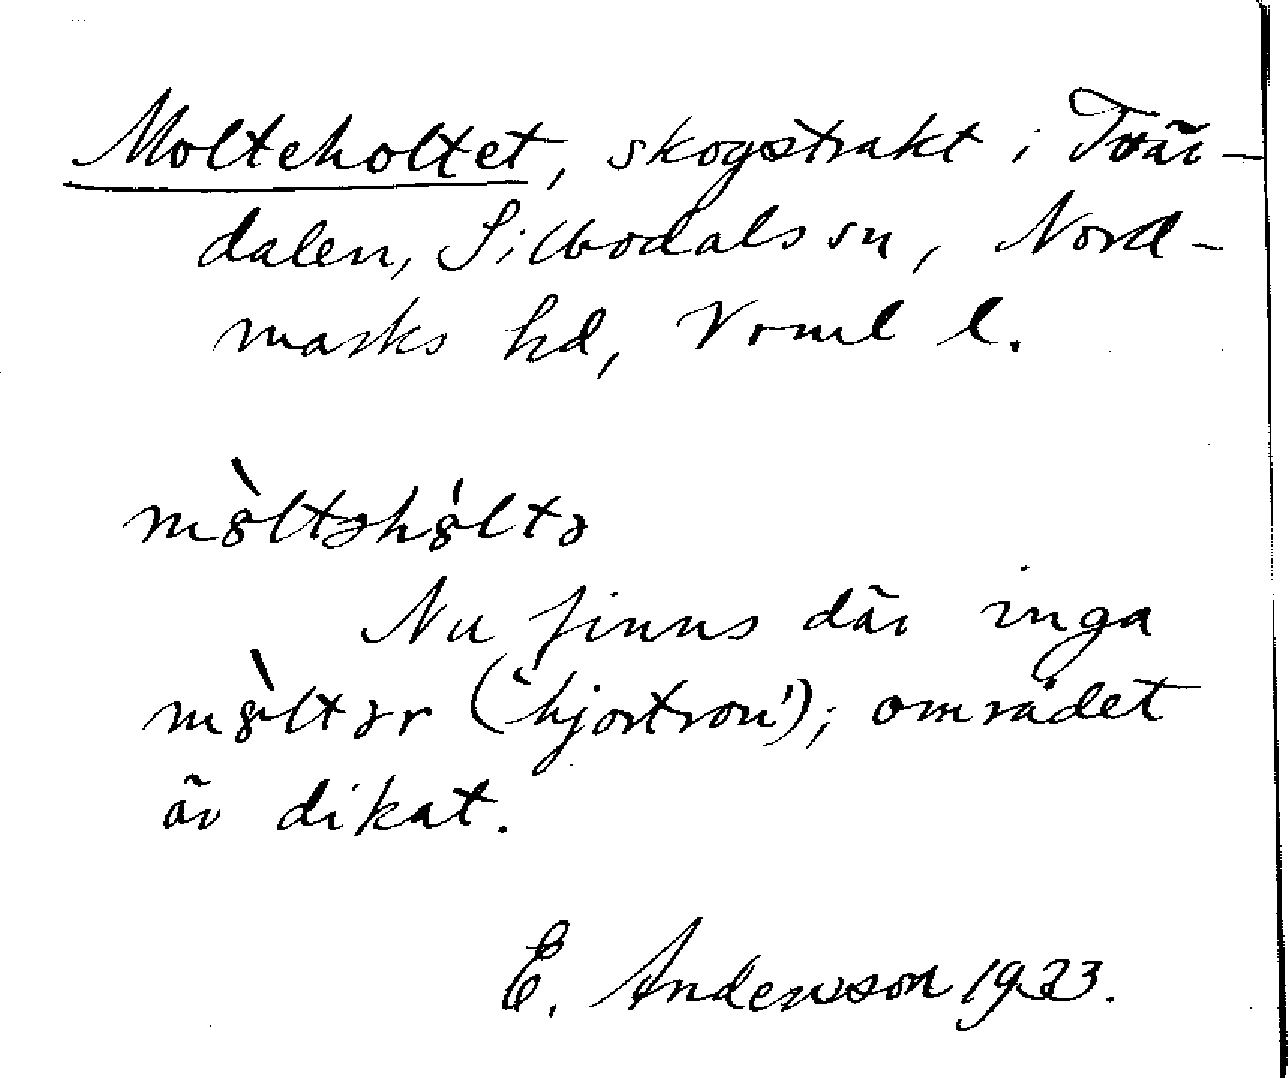 Molteholtet, skogstrakt i Tvär-
dalen, Silbodals sn, Nord-
marks hd, Vrml l.
mòltəhóltə
Nu finns där inga
mòltər ('hjortron'); området
är dikat.
E. Andersson 1933.